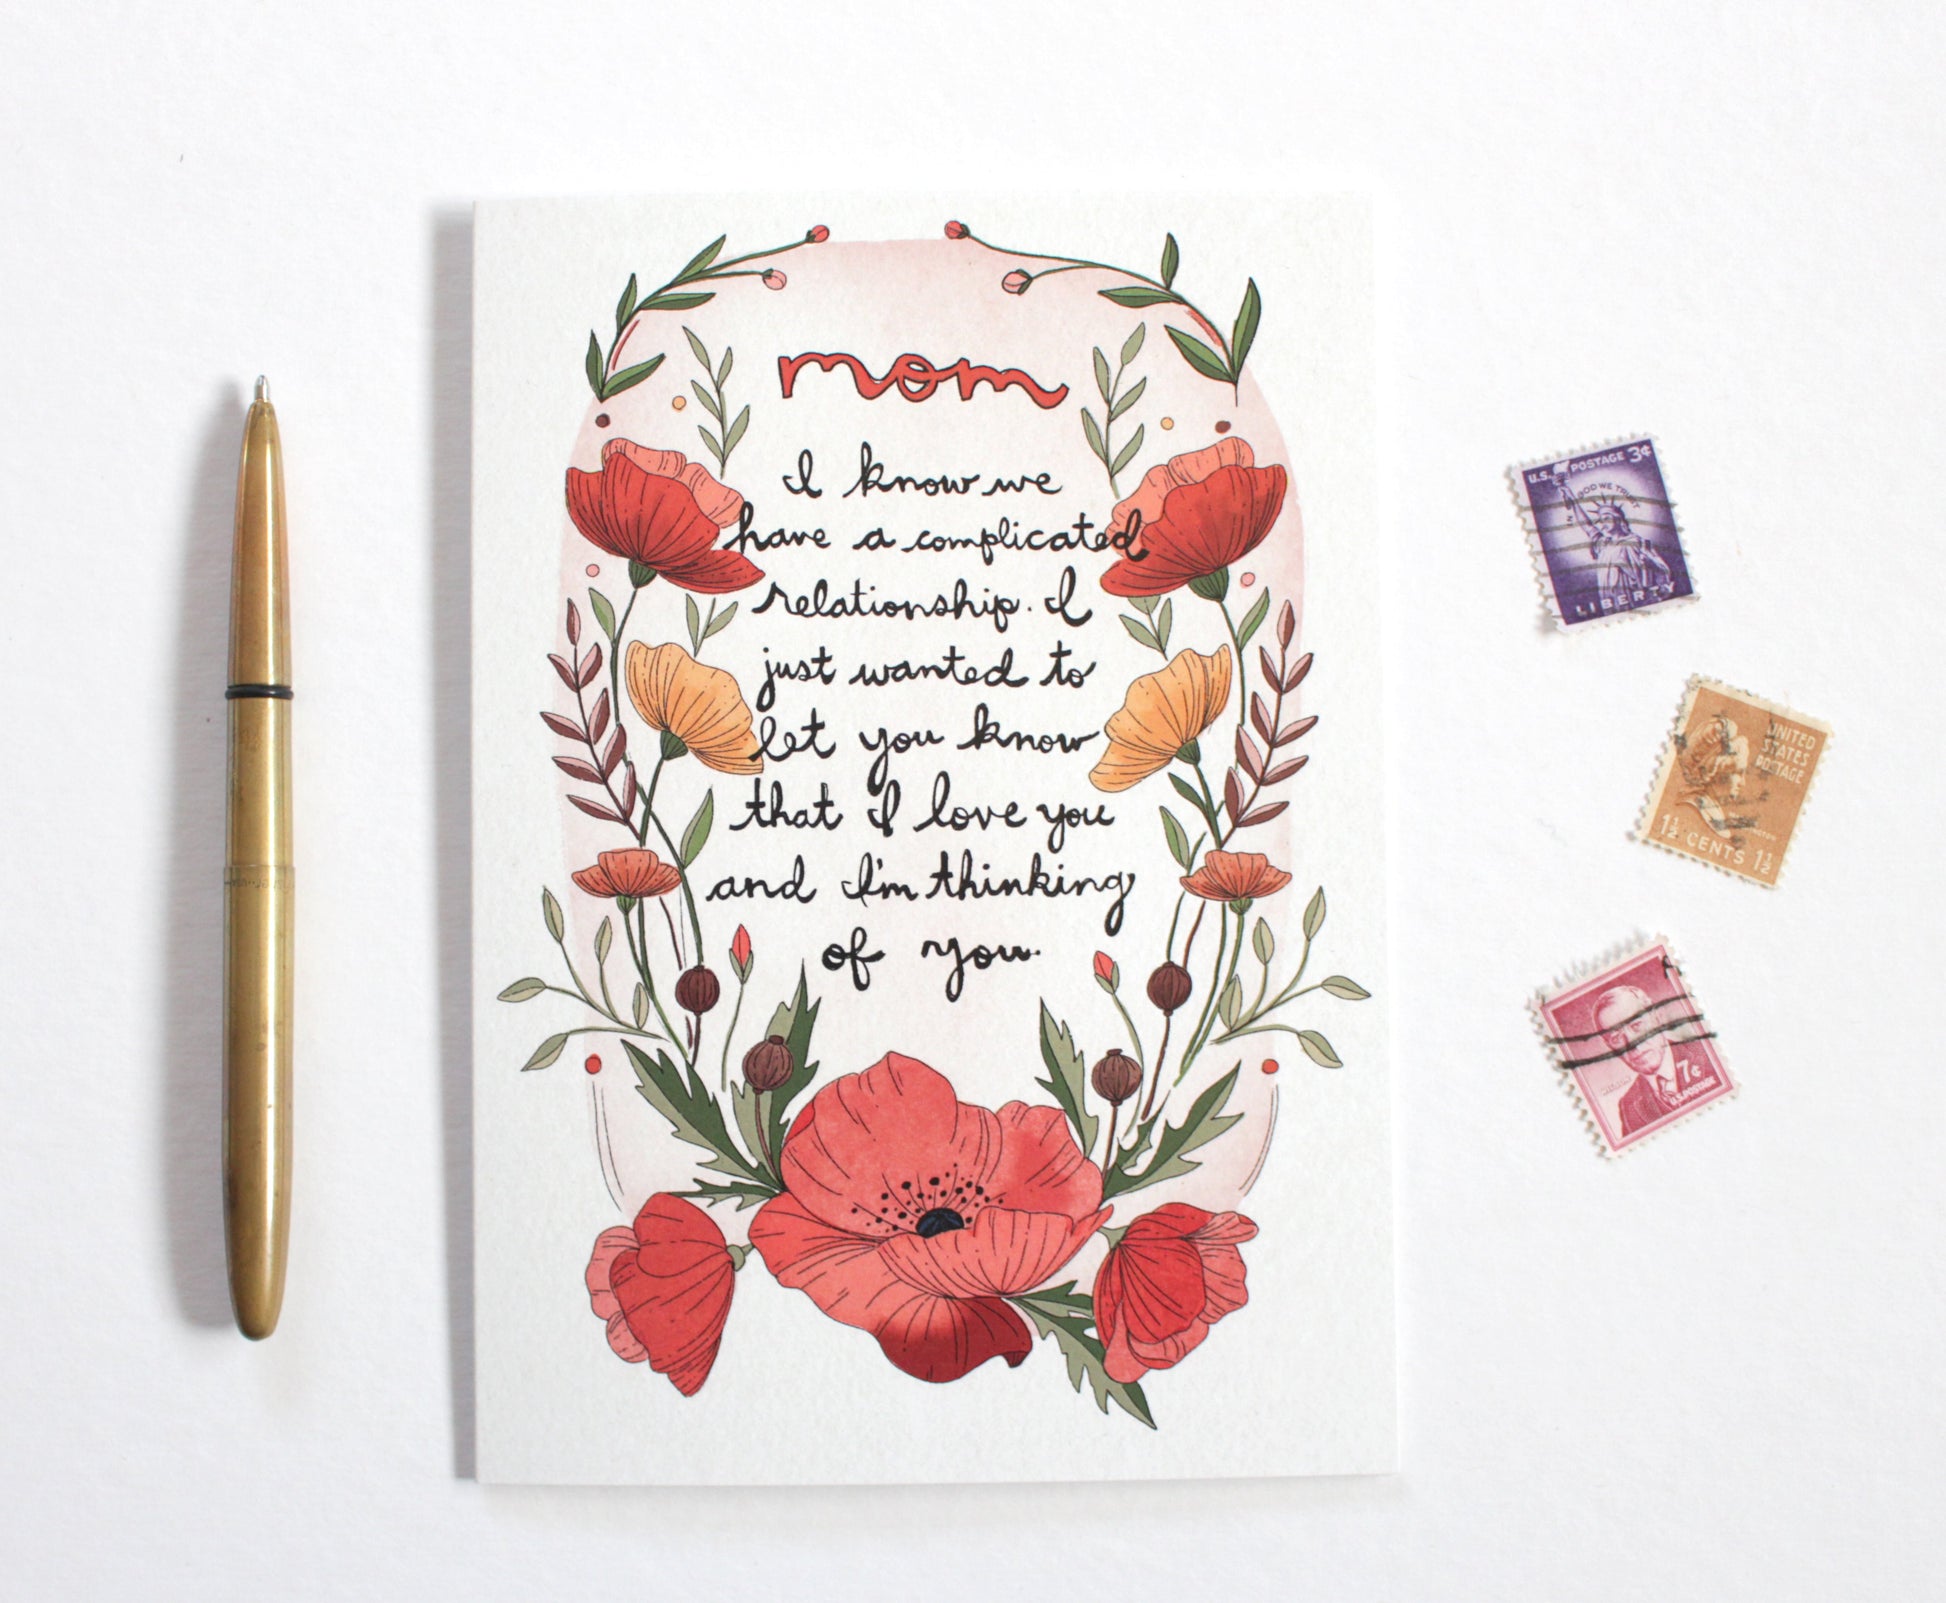 mom
I know we
have a complicated
relationship. I
just wanted to
let you know
that I love you
and I'm thinking
of you.
U.S. POSTAGE 3¢
IN GOD WE TRUST
LIBERTY
UNITED
STATES
POSTAGE
1½ CENTS 1½
7¢
U.S. POSTAGE